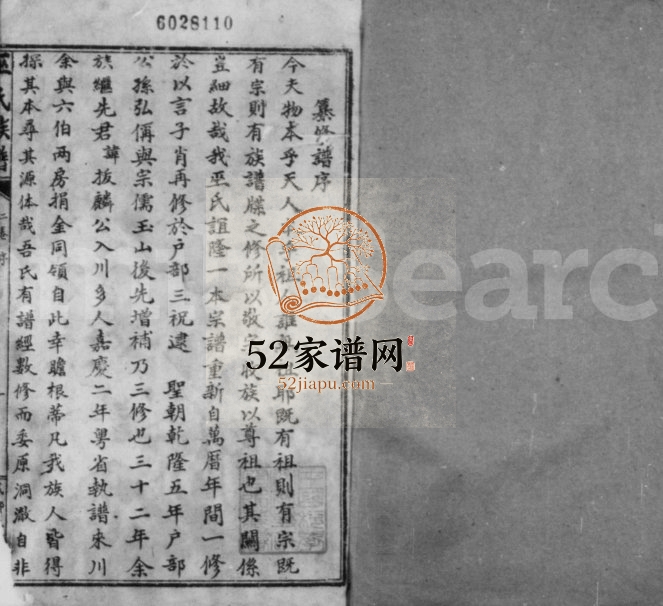 6028110
纂修譜序
今夫物本乎天人本乎祖人誰無祖耶既有祖則有宗既
有宗則有族譜牒之修所以敬宗收族以尊祖也其關係
豈細故哉我巫氏誼隆一本宗譜重新自萬曆年間一修
於以言子肖再修於户部三祝逮 聖朝乾隆五年户部
公孫弘偁與宗儒玉山後先增補乃三修也三十二年余
族繼先君諱拔麟公入川多人嘉慶二年粵省執譜來川
余與六伯兩房捐金同領自此幸瞻根蒂凡我族人皆得
探其本尋其源体哉吾氏有譜經數修而委原洞澈自非
巫氏族譜
二卷 序
search
52家谱网
52jiapu.com